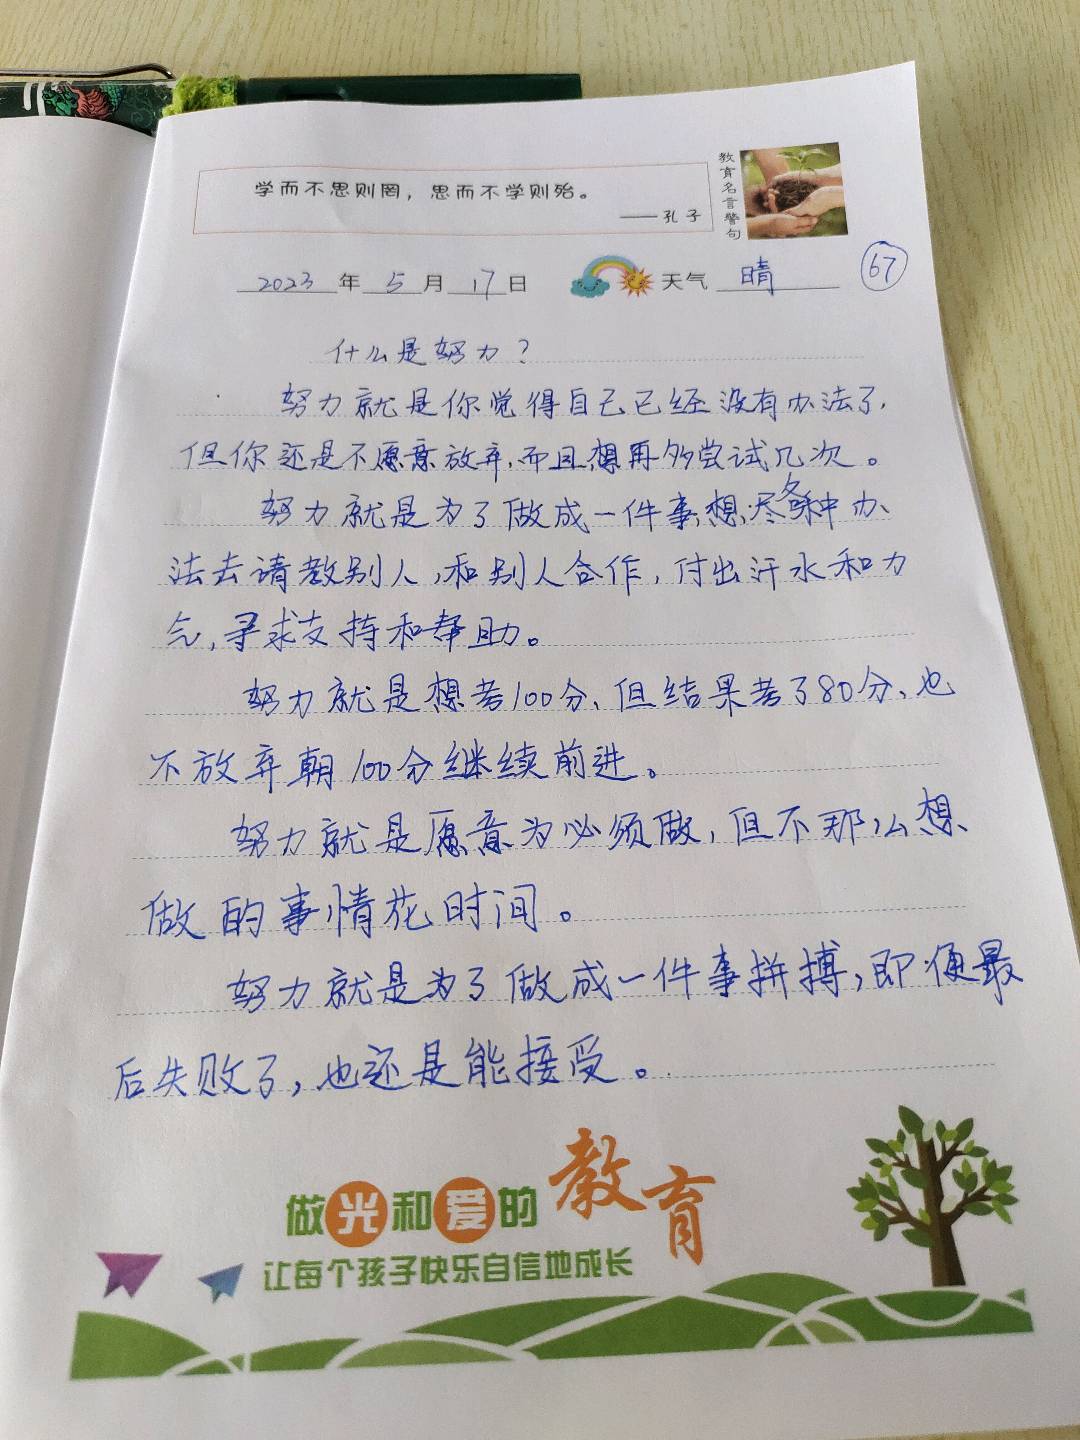 学而不思则罔，思而不学则殆。
——孔子
教育名言警句
2023年5月17日 天气 晴
67
什么是努力？
努力就是你觉得自己已经没有办法了，
但你还是不愿意放弃，而且想再多尝试几次。
努力就是为了做成一件事，想尽各种办
法去请教别人，和别人合作，付出汗水和力
气，寻求支持和帮助。
努力就是想考100分，但结果考了80分，也
不放弃朝100分继续前进。
努力就是愿意为必须做，但不那么想
做的事情花时间。
努力就是为了做成一件事拼搏，即便最
后失败了，也还是能接受。
做光和爱的教育
让每个孩子快乐自信地成长